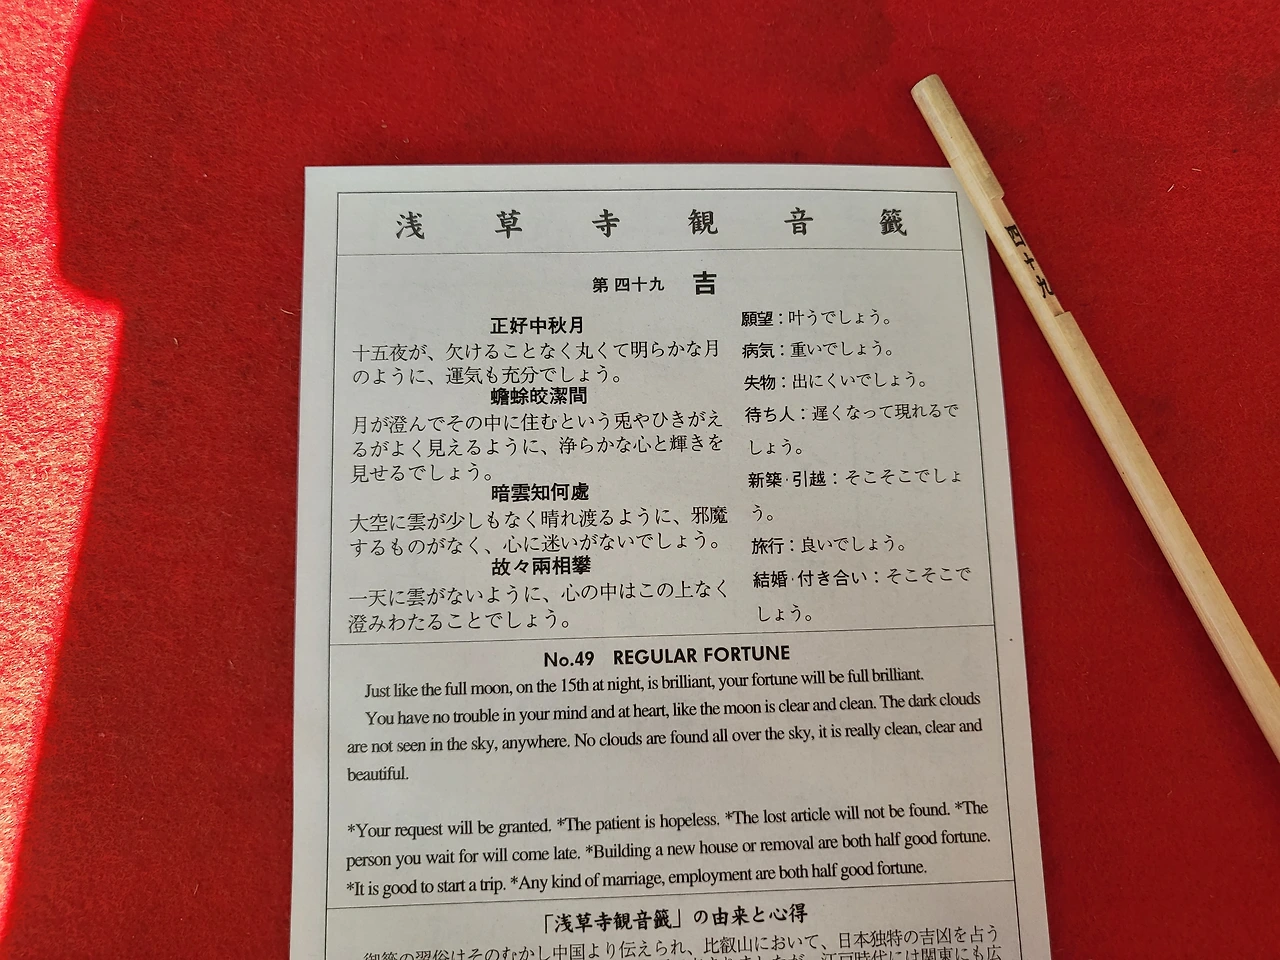 浅草寺観音籤
第四十九 吉
正好中秋月
十五夜が、欠けることなく丸くて明らかな月
のように、運気も充分でしょう。
蟾蜍皎潔間
月が澄んでその中に住むという兎やひきがえ
るがよく見えるように、浄らかな心と輝きを
見せるでしょう。
暗雲知何處
大空に雲が少しもなく晴れ渡るように、邪魔
するものがなく、心に迷いがないでしょう。
故々兩相攀
一天に雲がないように、心の中はこの上なく
澄みわたることでしょう。
願望：叶うでしょう。
病気：重いでしょう。
失物：出にくいでしょう。
待ち人：遅くなって現れるで
しょう。
新築·引越：そこそこでしょ
う。
旅行：良いでしょう。
結婚·付き合い：そこそこで
しょう。
No.49 REGULAR FORTUNE
Just like the full moon, on the 15th at night, is brilliant, your fortune will be full brilliant.
You have no trouble in your mind and at heart, like the moon is clear and clean. The dark clouds
are not seen in the sky, anywhere. No clouds are found all over the sky, it is really clean, clear and
beautiful.
*Your request will be granted. *The patient is hopeless. *The lost article will not be found. *The
person you wait for will come late. *Building a new house or removal are both half good fortune.
*It is good to start a trip. *Any kind of marriage, employment are both half good fortune.
「浅草寺観音籤」の由来と心得
御籤の習俗はそのむかし中国より伝えられ、比叡山において、日本独特の吉凶を占う
江戸時代には関東にも広
四十九